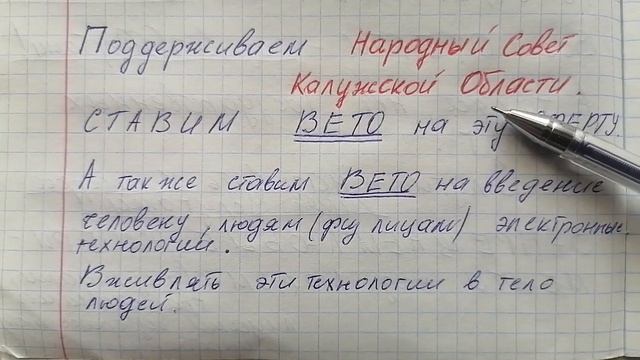 Поддерживаем Народный Совет
Калужской Области.
СТАВИМ ВЕТО на эту ОФЕРТУ.
А так же ставим ВЕТО на введение
человеку, людям (физ лицам) электронные
технологии.
Вживлять эти технологии в тело
людей.